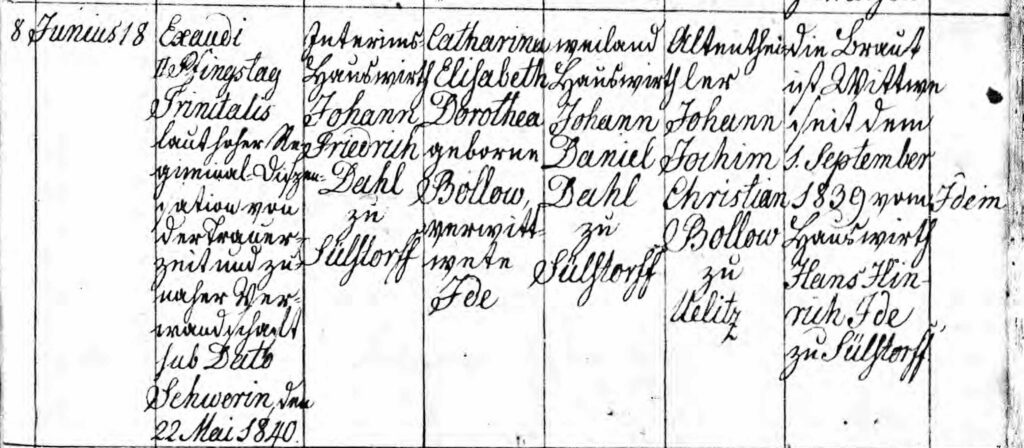 8
Junius 18
Exaudi
II Pfingstag
Trinitatis
laut hoher Re-
giminal-Dispen-
sation von
der Trauer-
zeit und zu
naher Ver-
wandschaft
sub Dato
Schwerin, den
22 Mai 1840.
Interims-
Hauswirth
Johann
Friedrich
Dahl
zu
Sülstorff
Catharina
Elisabeth
Dorothea
geborne
Bollow,
verwitt-
wete
Ide
weiland
Hauswirth
Johann
Daniel
Dahl
zu
Sülstorff
Altenthei-
ler
Johann
Jochim
Christian
Bollow
zu
Uelitz
die Braut
ist Wittwe
seit dem
1. September
1839 vom
Hauswirth
Hans Hin-
rich Ide
zu Sülstorff.
Idem